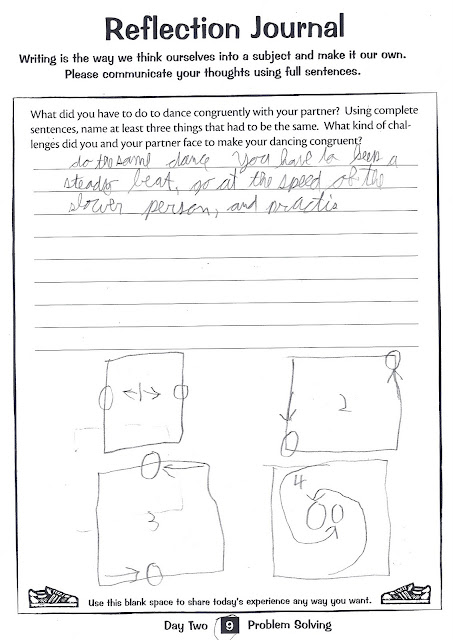 Reflection Journal
Writing is the way we think ourselves into a subject and make it our own.
Please communicate your thoughts using full sentences.
What did you have to do to dance congruently with your partner? Using complete
sentences, name at least three things that had to be the same. What kind of chal-
lenges did you and your partner face to make your dancing congruent?
do the same dance You have to keep a
steady beat, go at the speed of the
slower person, and practis
1
2
3
4
Use this blank space to share today's experience any way you want.
Day Two 9 Problem Solving